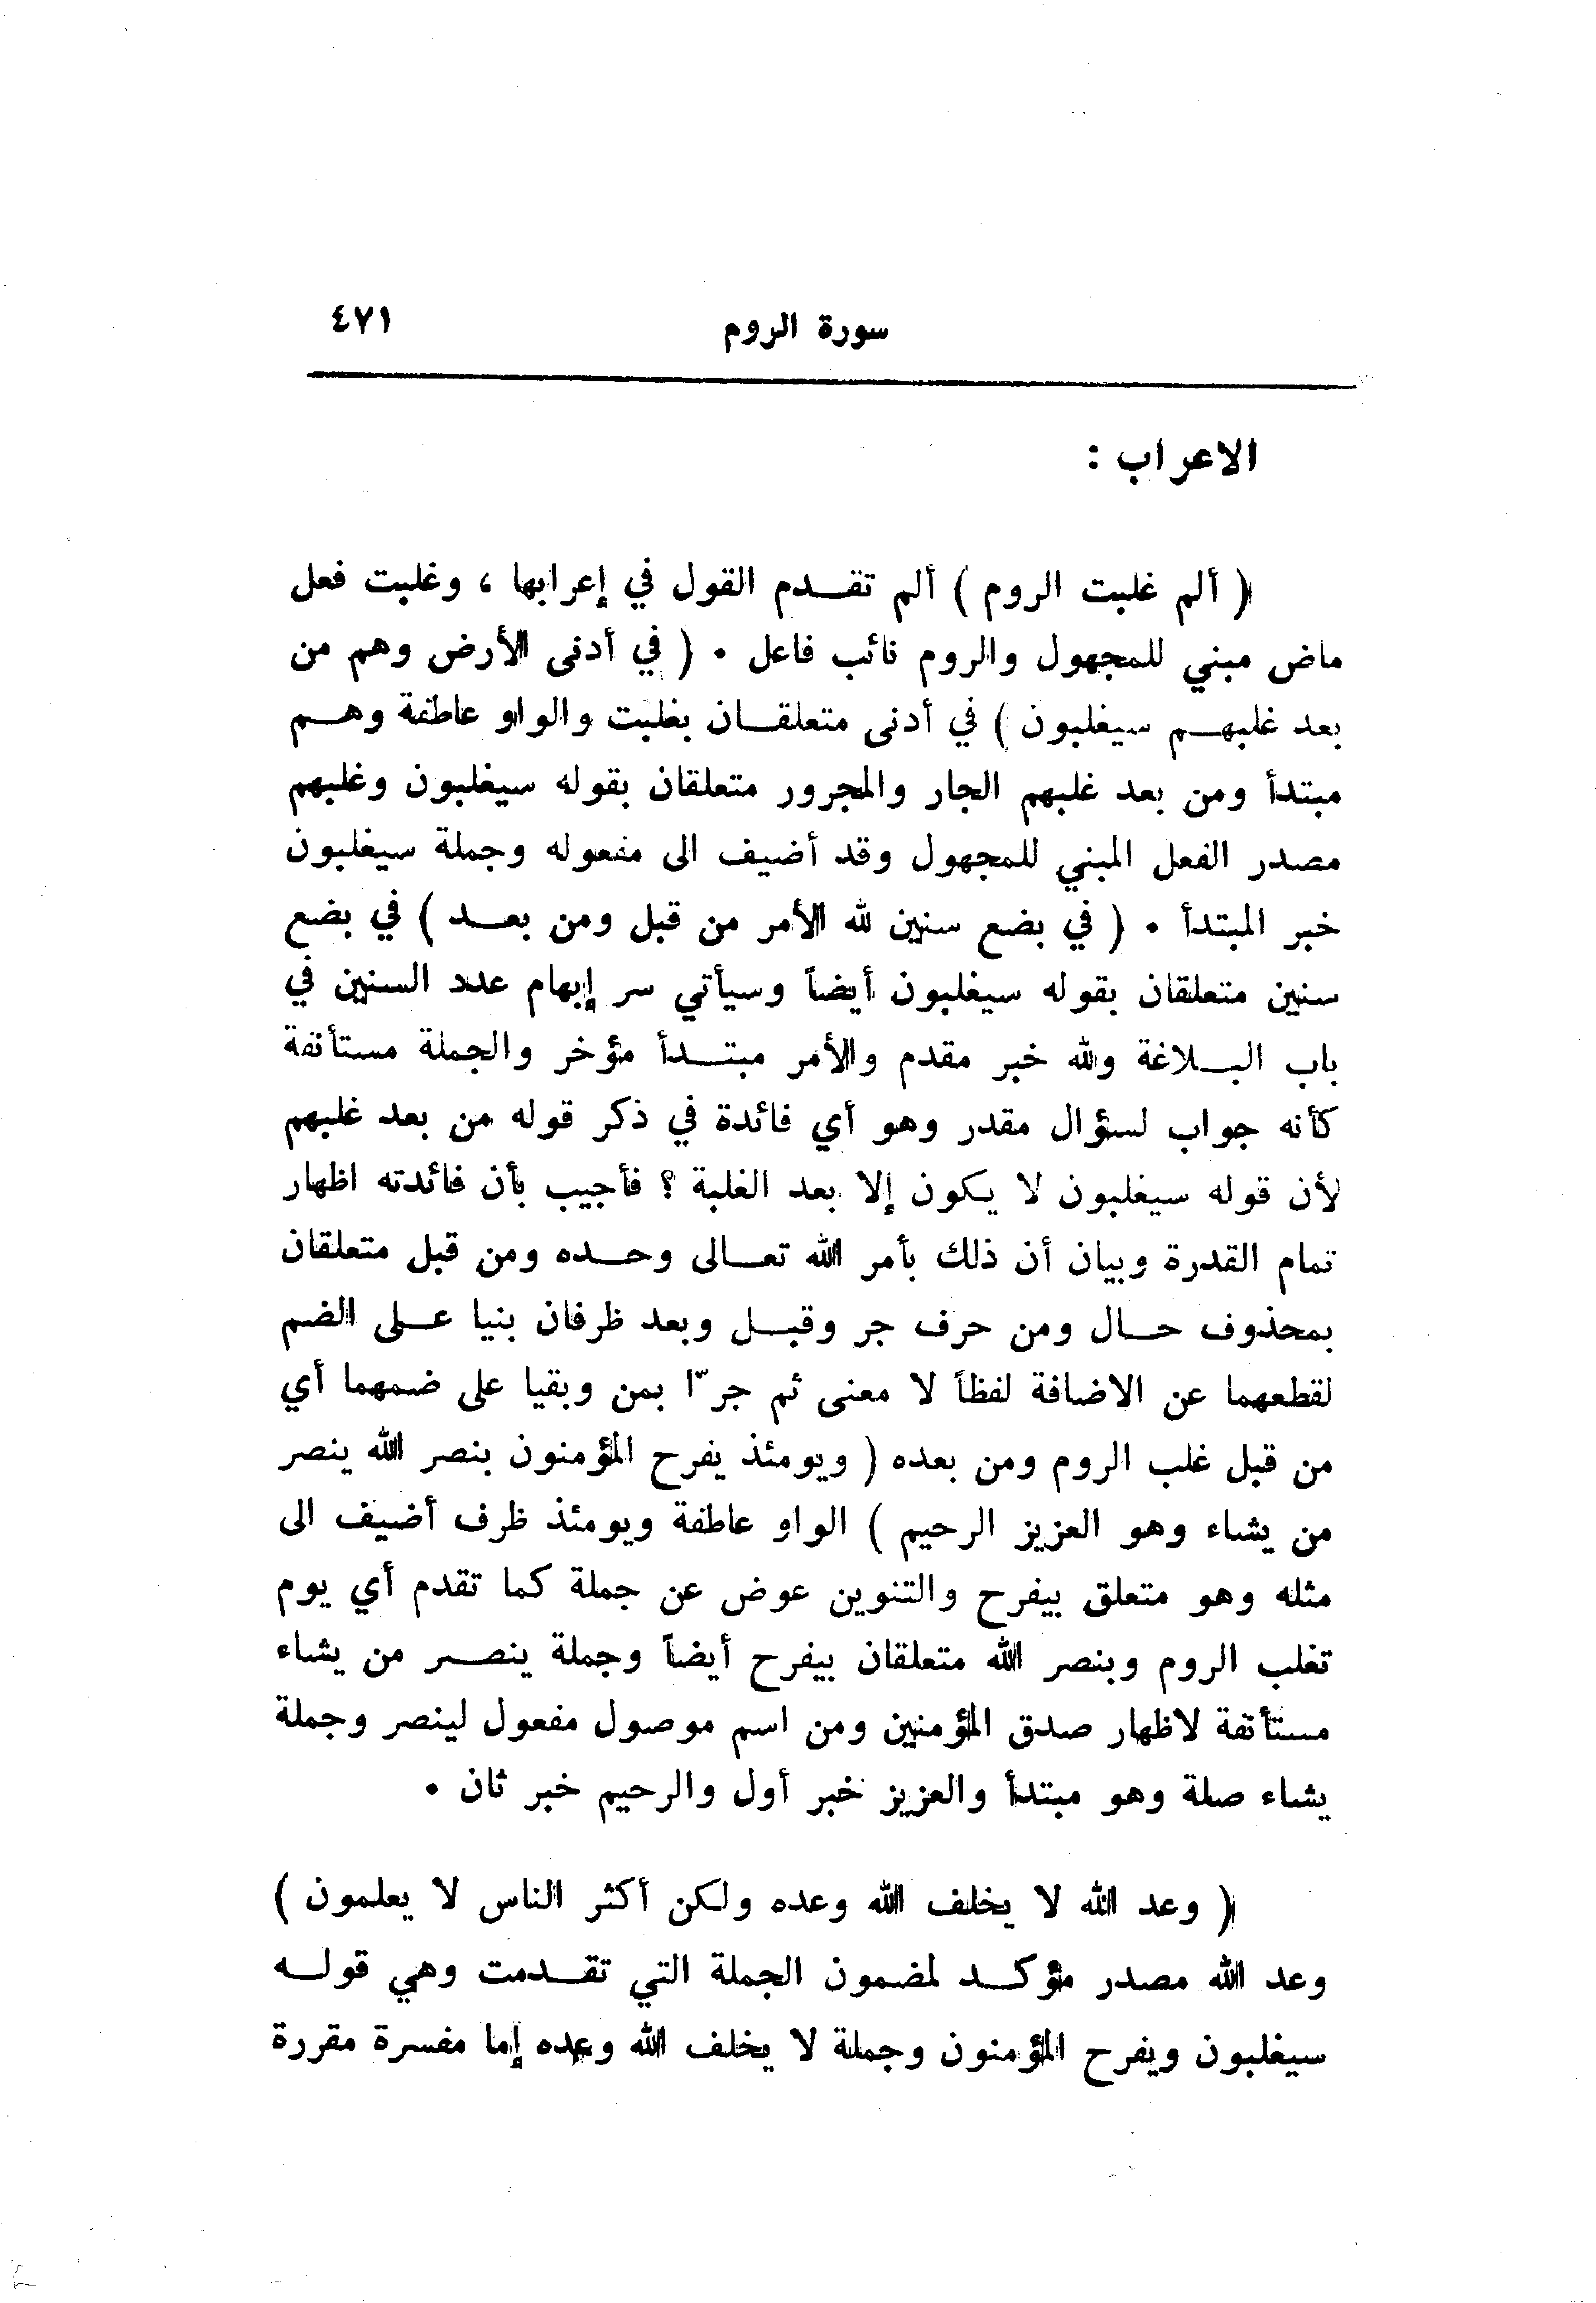 سورة الروم ٤٧١
الاعراب :
( ألم غلبت الروم ) ألم تقدم القول في إعرابها ، وغلبت فعل
ماض مبني للمجهول والروم نائب فاعل . ( في أدنى الأرض وهم من
بعد غلبهم سيغلبون ) في أدنى متعلقان بغلبت والواو عاطفة وهم
مبتدأ ومن بعد غلبهم الجار والمجرور متعلقان بقوله سيغلبون وغلبهم
مصدر الفعل المبني للمجهول وقد أضيف الى مفعوله وجملة سيغلبون
خبر المبتدأ . ( في بضع سنين لله الأمر من قبل ومن بعد ) في بضع
سنين متعلقان بقوله سيغلبون أيضاً وسيأتي سر إبهام عدد السنين في
باب البلاغة ولله خبر مقدم والأمر مبتدأ مؤخر والجملة مستأنفة
كأنه جواب لسؤال مقدر وهو أي فائدة في ذكر قوله من بعد غلبهم
لأن قوله سيغلبون لا يكون إلا بعد الغلبة ؟ فأجيب بأن فائدته اظهار
تمام القدرة وبيان أن ذلك بأمر الله تعالى وحده ومن قبل متعلقان
بمحذوف حال ومن حرف جر وقبل وبعد ظرفان بنيا على الضم
لقطعهما عن الاضافة لفظاً لا معنى ثم جرّا بمن وبقيا على ضمهما أي
من قبل غلب الروم ومن بعده ( ويومئذ يفرح المؤمنون بنصر الله ينصر
من يشاء وهو العزيز الرحيم ) الواو عاطفة ويومئذ ظرف أضيف الى
مثله وهو متعلق بيفرح والتنوين عوض عن جملة كما تقدم أي يوم
تغلب الروم وبنصر الله متعلقان بيفرح أيضاً وجملة ينصر من يشاء
مستأنفة لاظهار صدق المؤمنين ومن اسم موصول مفعول لينصر وجملة
يشاء صلة وهو مبتدأ والعزيز خبر أول والرحيم خبر ثان .
( وعد الله لا يخلف الله وعده ولكن أكثر الناس لا يعلمون )
وعد الله مصدر مؤكد لمضمون الجملة التي تقدمت وهي قوله
سيغلبون ويفرح المؤمنون وجملة لا يخلف الله وعده إما مفسرة مقررة